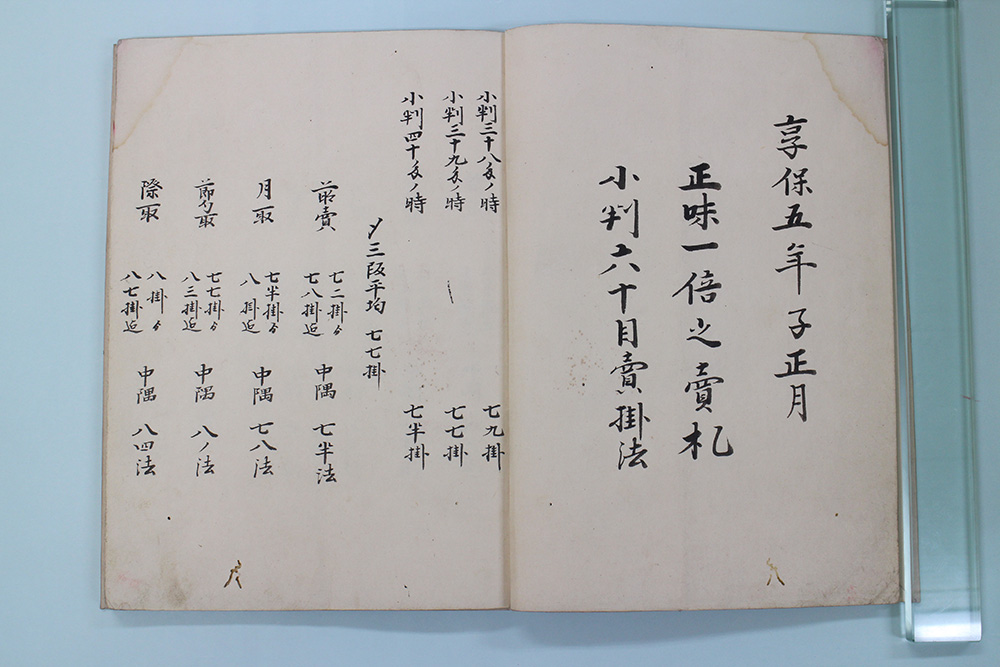 享保五年子正月
正味一倍之賣札
小判六十目賣掛法
小判三十八匁ノ時 七九掛
小判三十九匁ノ時 〃 七七掛
小判四十匁ノ時 七半掛
〆三段平均 七七掛
前賣 七二掛ゟ 七八掛迄 中隅 七半法
月取 七半掛ゟ 八掛迄 中隅 七八法
節句取 七七掛ゟ 八三掛迄 中隅 八ノ法
際取 八掛ゟ 八七掛迄 中隅 八四法